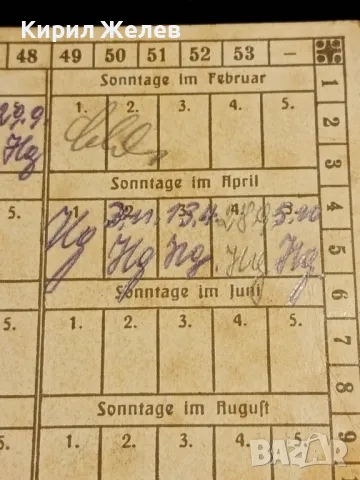 Кирил Желев
48 49 50 51 52 53 —
Sonntage im Februar
1. 2. 3. 4. 5.
1
2
Hg
Sonntage im April
3
4
1. 13.4. 5.
Hg Hg Hg Hg Hg
5
Sonntage im Juni
5. 1. 2. 3. 4. 5.
6
7
Sonntage im August
8
5. 1. 2. 3. 4. 5.
9
bazar